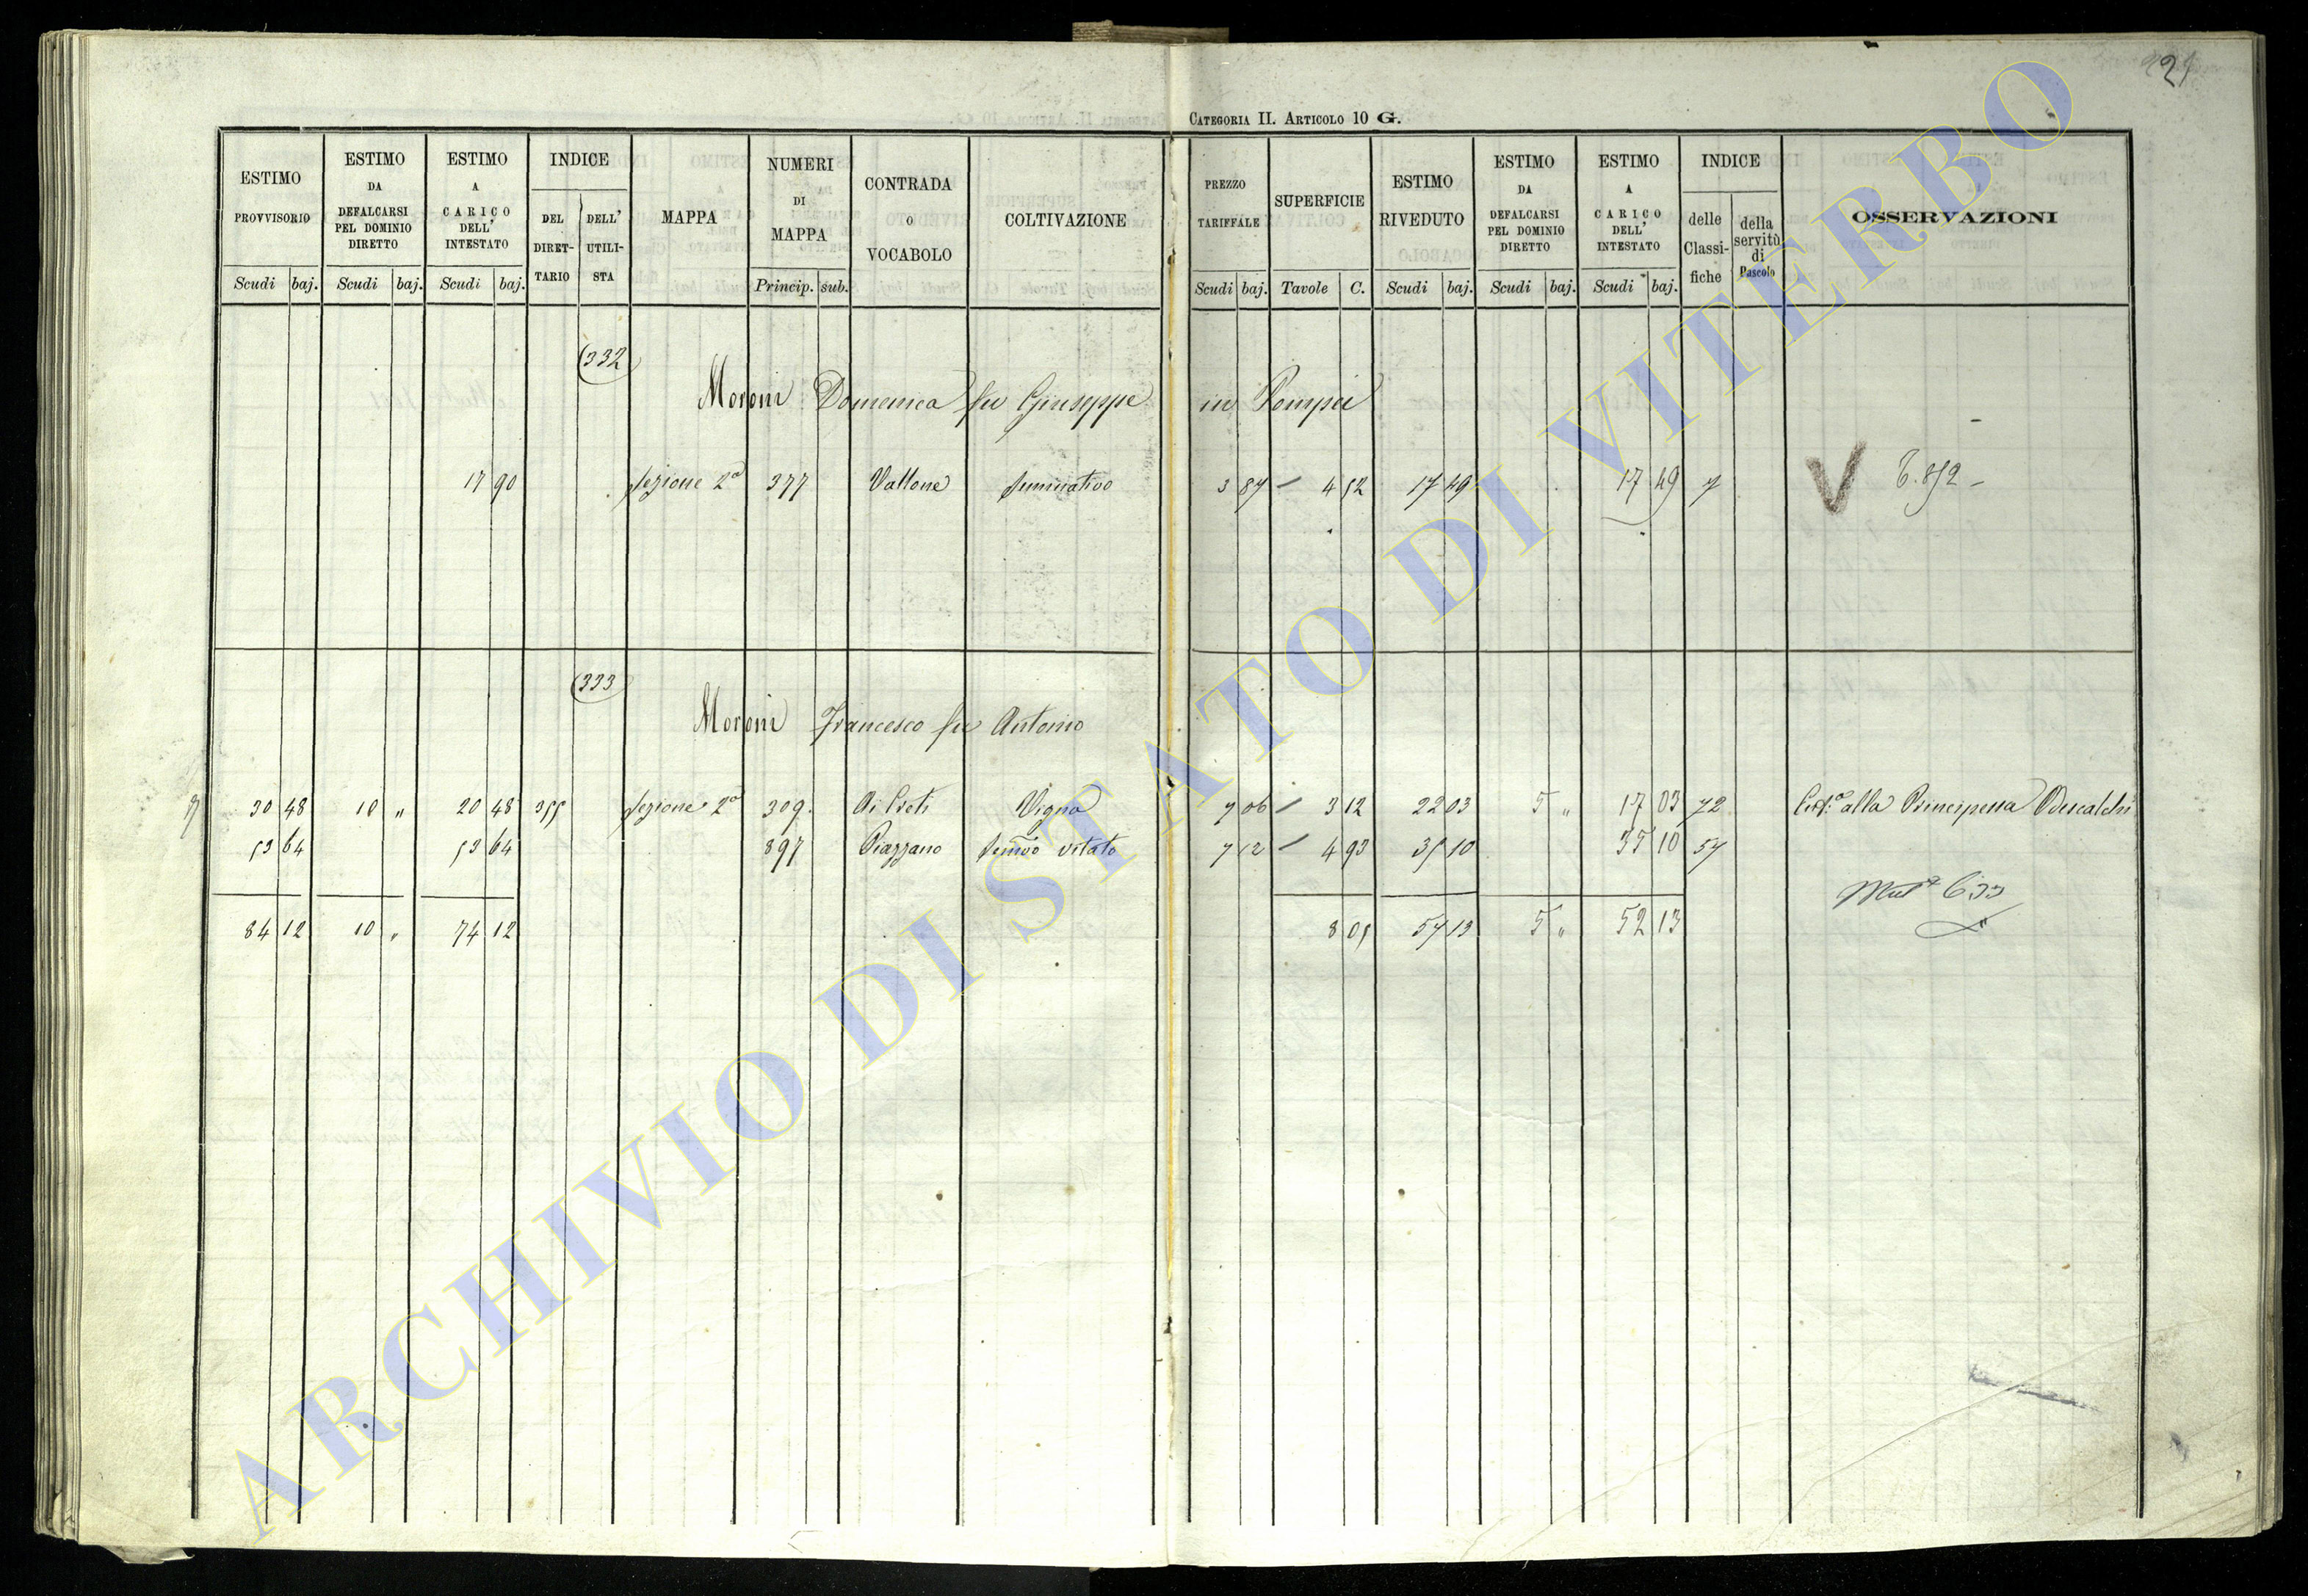 21
CATEGORIA II. ARTICOLO 10 G.
ESTIMO PROVVISORIO Scudi baj.
ESTIMO DA DEFALCARSI PEL DOMINIO DIRETTO Scudi baj.
ESTIMO A CARICO DELL' INTESTATO Scudi baj.
INDICE DEL DIRETTARIO DELL' UTILISTA
MAPPA
NUMERI DI MAPPA Princip. sub.
CONTRADA O VOCABOLO
COLTIVAZIONE
PREZZO TARIFFALE Scudi baj.
SUPERFICIE Tavole C.
ESTIMO RIVEDUTO Scudi baj.
ESTIMO DA DEFALCARSI PEL DOMINIO DIRETTO Scudi baj.
ESTIMO A CARICO DELL' INTESTATO Scudi baj.
INDICE delle Classifiche della servitù di Pascolo
OSSERVAZIONI
332
Moroni Domenica fu Giuseppe in Pompei
17 90 Sezione 2a 377 Vallone Seminativo 3 87 4 52 17 49 17 49 7 V
333
Moroni Francesco fu Antonio
30 48 10 " 20 48 355 Sezione 2a 309. Vigna 7 06 3 12 22 03 5 " 17 03 72 alla Principessa Odescalchi
53 64 53 64 897 Piazzano vitato 7 12 4 93 35 10 35 10 57
84 12 10 " 74 12 8 05 57 13 5 " 52 13
ARCHIVIO DI STATO DI VITERBO